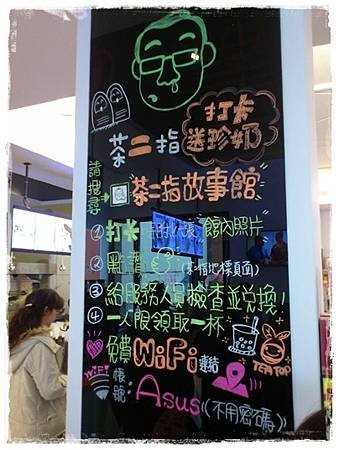 茶二指
打卡
送珍奶
請搜尋→
茶二指故事館
① 打卡 附1張 館內照片
② 點讚
③ 給服務人員檢查並兌換!
④ 一人限領取一杯
免費WiFi連結
TEA TOP
WiFi
帳號: Asus (不用密碼)